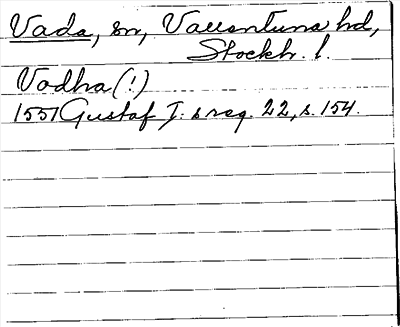 Vada, sn, Vallentuna hd,
Stockh. l.
Vodha (!)
1551 Gustaf I: s reg. 22, s. 154.